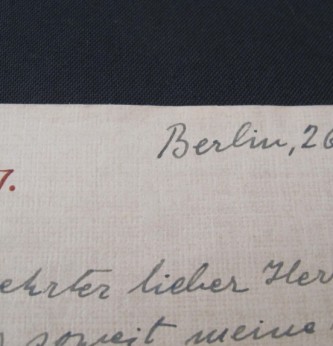 Berlin, 26
7.
ehrter lieber Herr
soweit meine